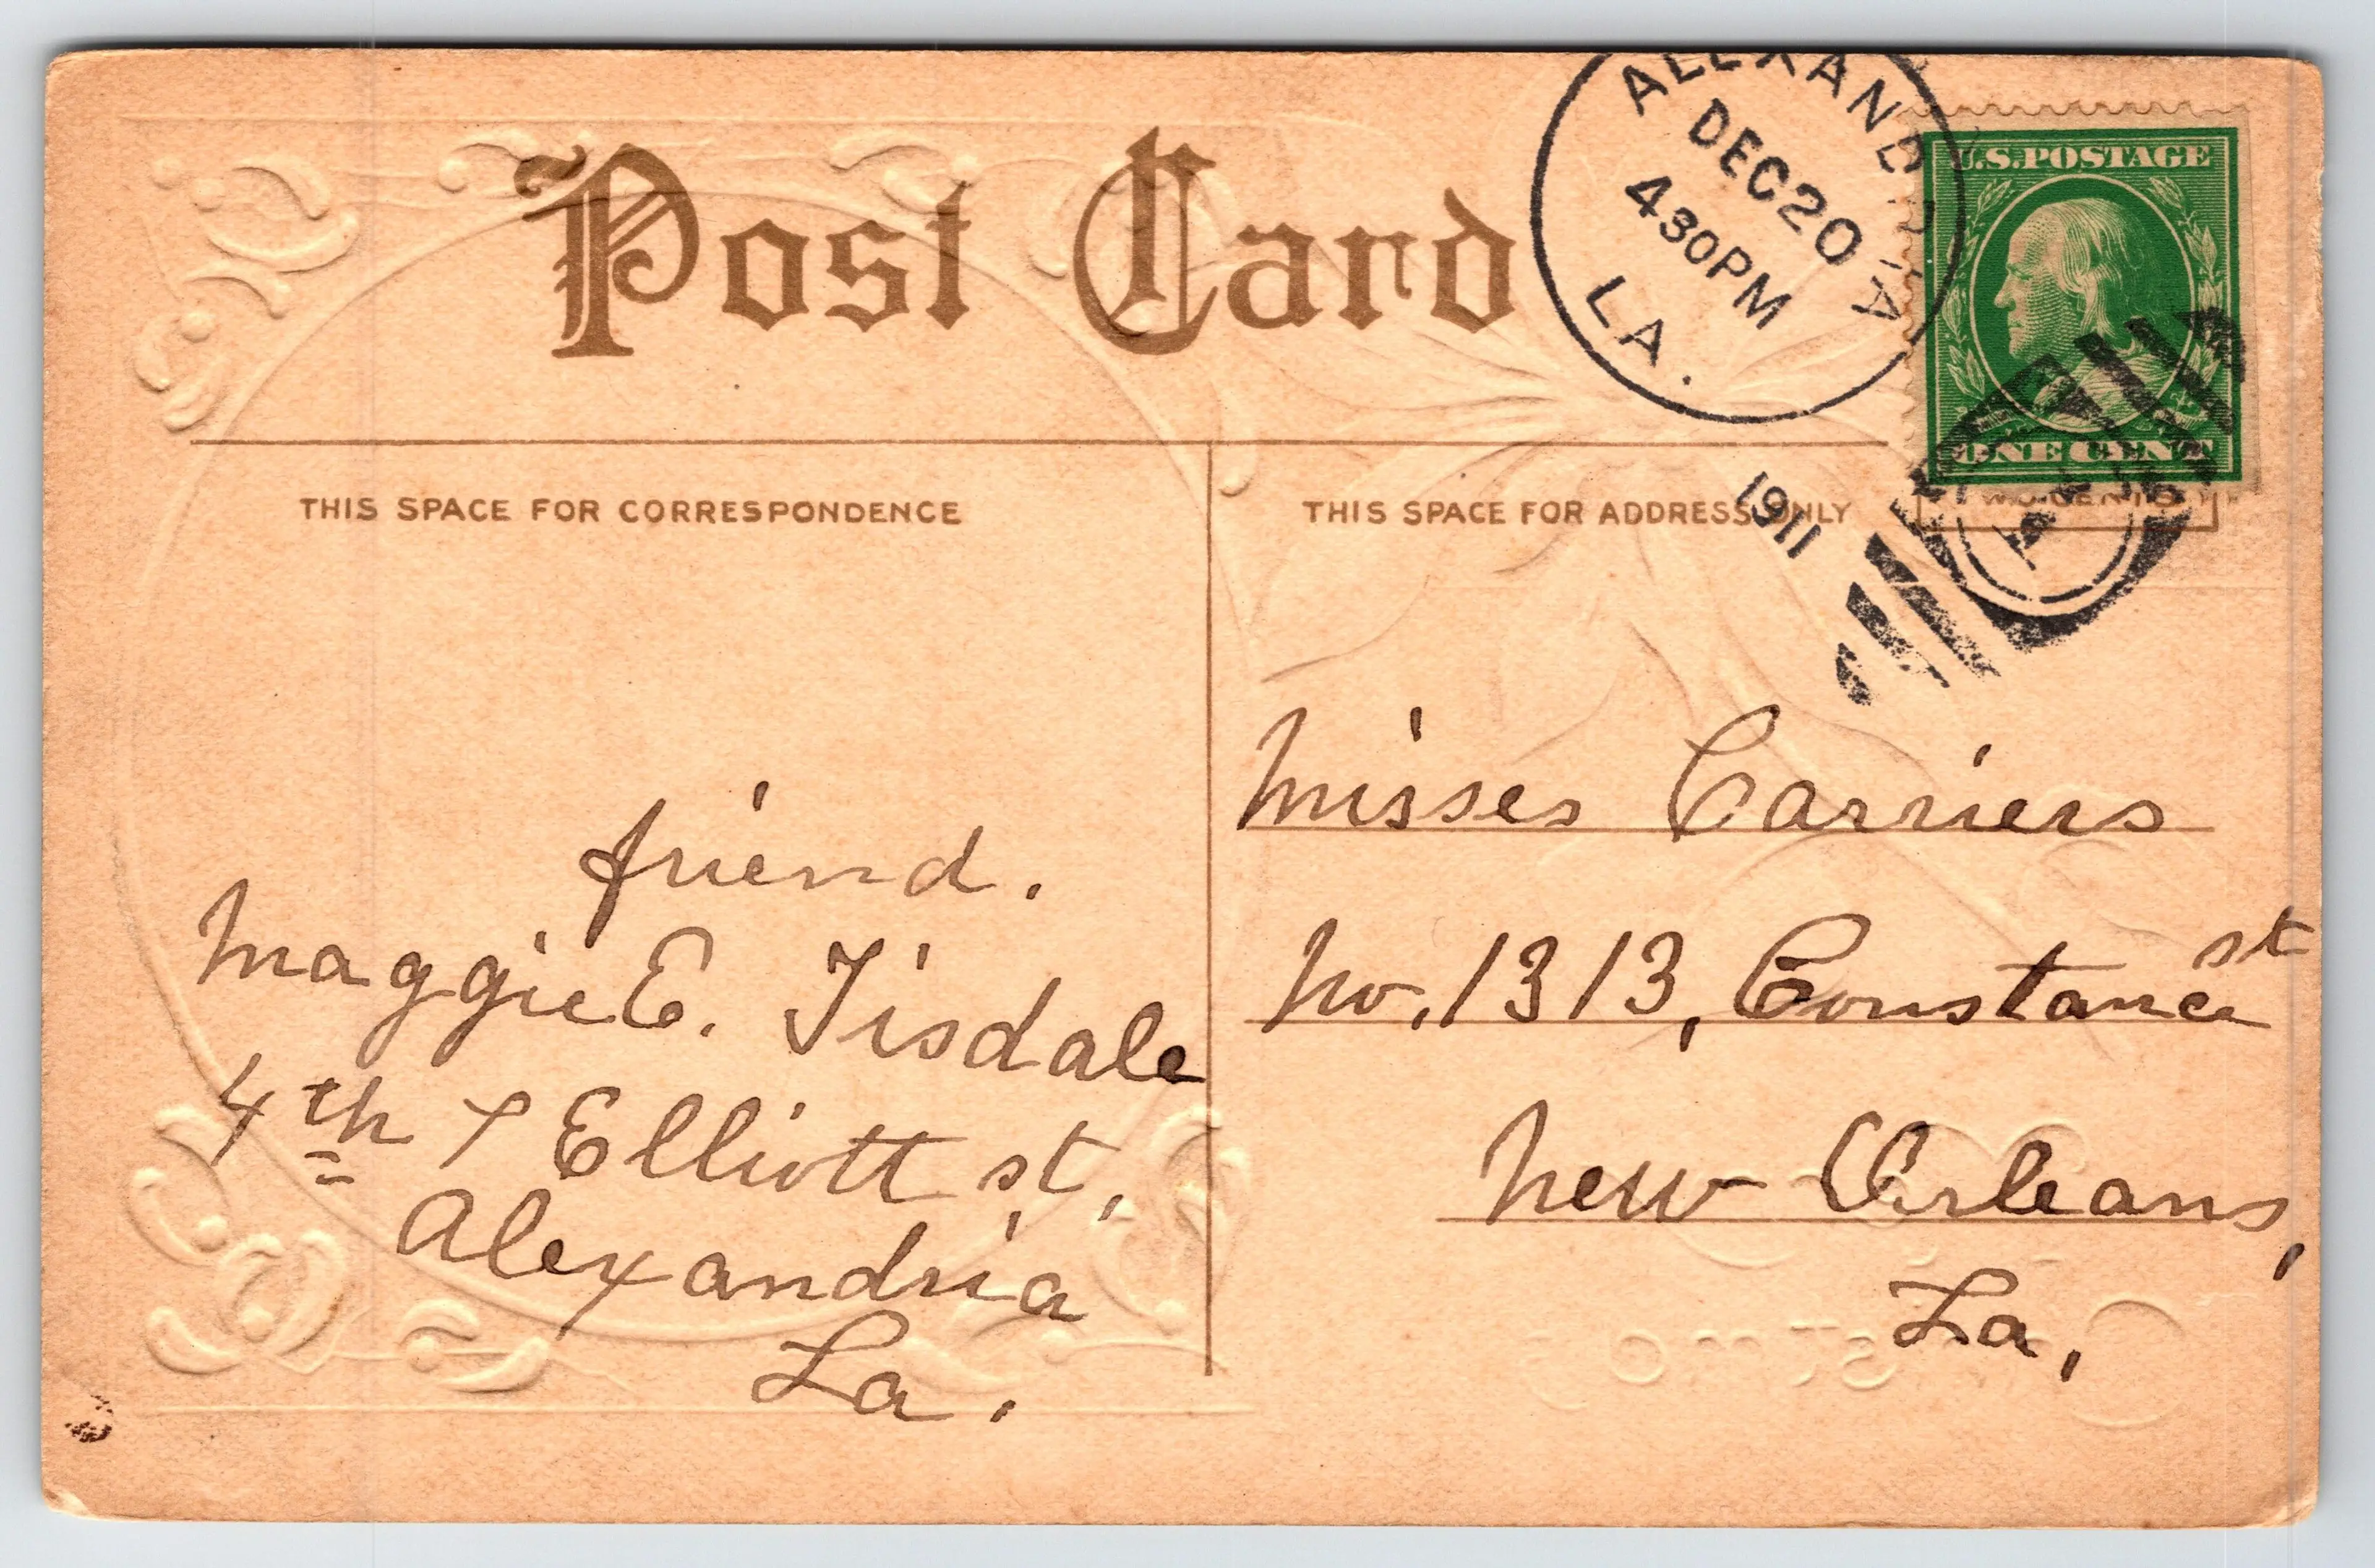 Post Card
ALEXANDRIA
DEC 20
430PM
LA.
1911
U.S. POSTAGE
ONE CENT
THIS SPACE FOR CORRESPONDENCE
THIS SPACE FOR ADDRESS ONLY
friend.
Maggie E. Tisdale
4th & Elliott st,
Alexandria
La.
Misses Carriers
No. 1313, Constance st
New Orleans,
La,